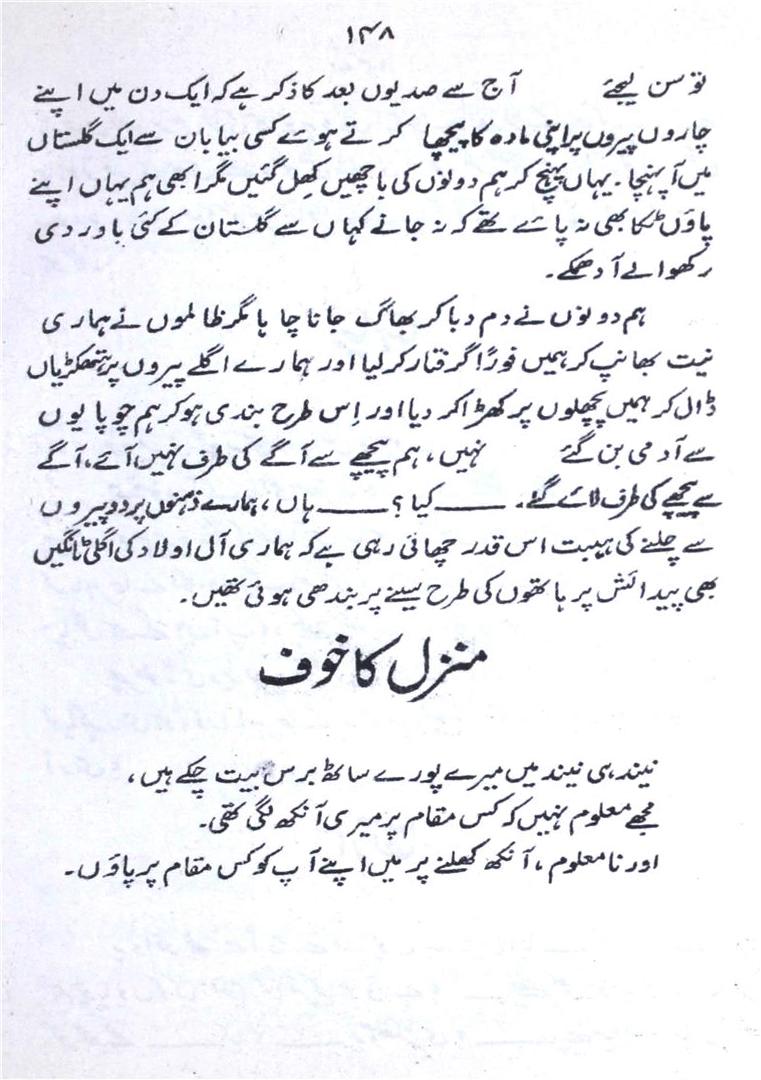 ۱۴۸
تو سن لیجئے آج سے صدیوں بعد کا ذکر ہے کہ ایک دن میں اپنے
چاروں پیروں پر اپنی مادہ کا پیچھا کرتے ہوئے کسی بیابان سے ایک گلستاں
میں آپہنچا۔ یہاں پہنچ کر ہم دونوں کی باچھیں کھل گئیں مگر ابھی ہم یہاں اپنے
پاؤں ٹکا بھی نہ پائے تھے کہ نہ جانے کہاں سے گلستان کے کئی باوردی
رکھوالے آدھمکے۔
ہم دونوں نے دم دبا کر بھاگ جانا چاہا مگر ظالموں نے ہماری
نیت بھانپ کر ہمیں فوراً گرفتار کر لیا اور ہمارے اگلے پیروں پر ہتھکڑیاں
ڈال کر ہمیں پچھلوں پر کھڑا کر دیا اور اِس طرح بندی ہو کر ہم چوپایوں
سے آدمی بن گئے نہیں، ہم پیچھے سے آگے کی طرف نہیں آئے، آگے
سے پیچھے کی طرف لائے گئے۔ ——— کیا؟ ——— ہاں، ہمارے ذہنوں پر دو پیروں
سے چلنے کی ہیبت اس قدر چھائی رہی ہے کہ ہماری آل اولاد کی اگلی ٹانگیں
بھی پیدائش پر ہاتھوں کی طرح سینے پر بندھی ہوئی تھیں۔
منزل کا خوف
نیند ہی نیند میں میرے پورے ساٹھ برس بیت چکے ہیں،
مجھے معلوم نہیں کہ کس مقام پر میری آنکھ لگی تھی۔
اور نا معلوم، آنکھ کھلنے پر میں اپنے آپ کو کس مقام پر پاؤں۔